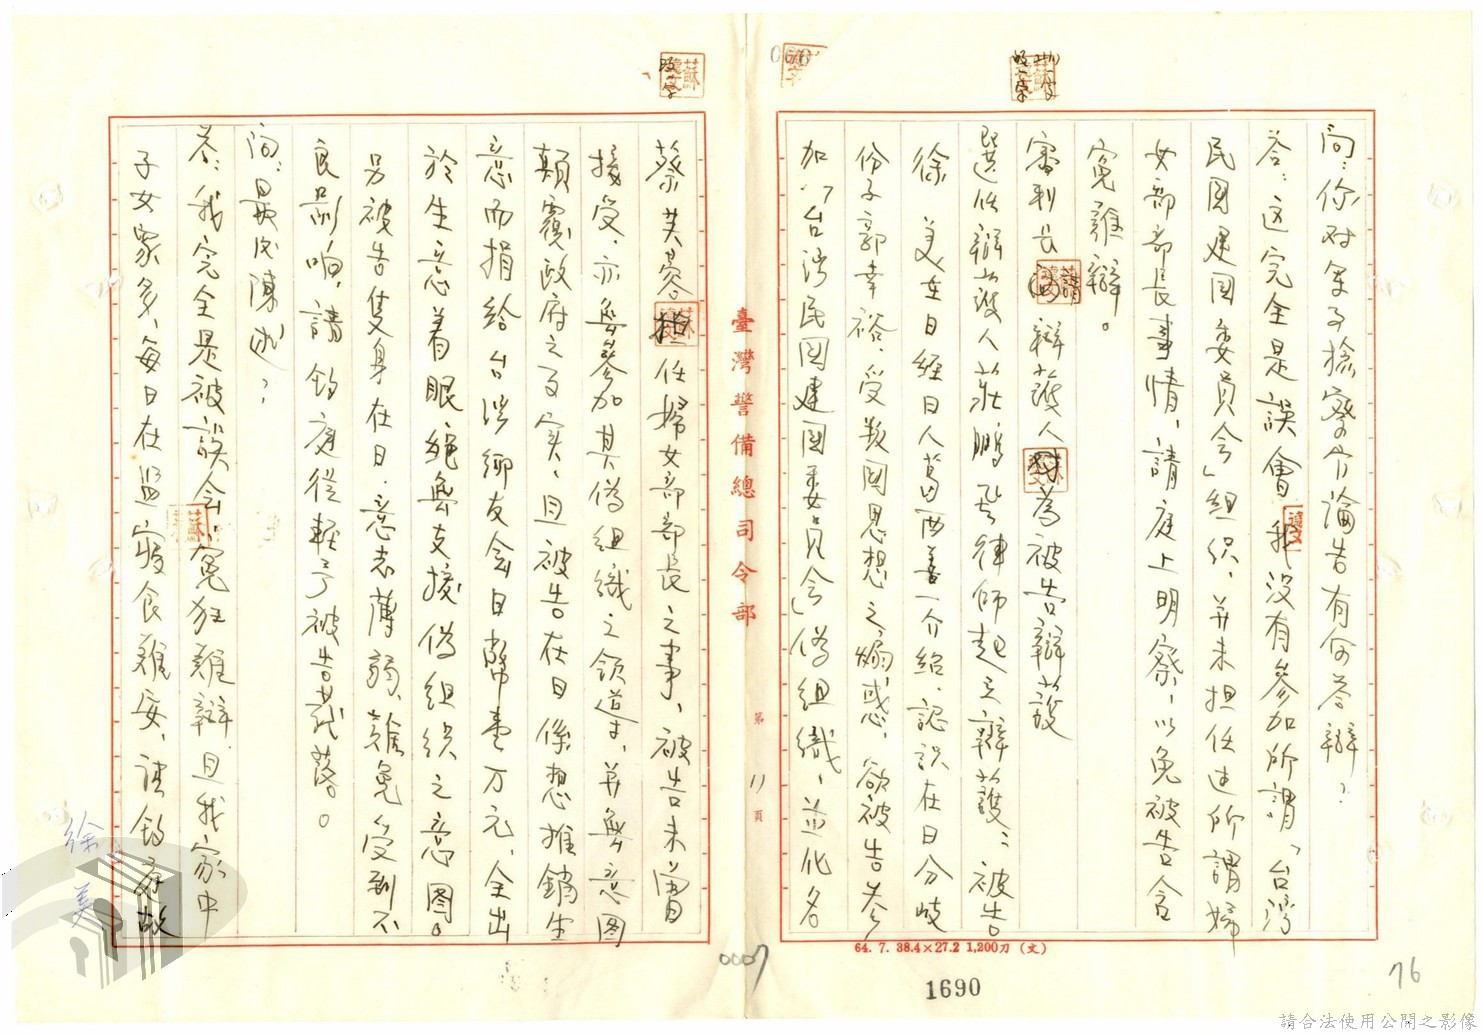 問：你对軍事檢察官論告有何答辯？
答：這完全是誤會，我没有参加所謂「台湾
民国建国委員会」組织，并未担任过所謂婦
女部部長事情，請庭上明察，以免被告含
冤難辯。
審判長請辯護人為被告辯護
選任辯護人莊鵬 律師起立辯護：被告
徐美在日經日人葛西善一介紹，認识在日分岐
份子郭幸裕，受叛国思想之煽惑，欲被告参
加「台湾民国建国委員会」偽組織，並化名
蔡芙蓉担任婦女部部長之事，被告未嘗
接受，亦無參加其偽組織之領導，并無意图
顛覆政府之事实，且被告在日係想推銷生
意而捐給台湾鄉友会日幣壹万元，全出
於生意着眼，絕無支援偽組织之意图。
另被告隻身在日，意志薄弱，難免受到不
良影响，請鈞庭從輕予被告裁落。
問：最後陳述？
答：我完全是被誤会，冤狂難辯，且我家中
子女眾多，每日在监寢食難安，請鈞庭故
徐美
臺灣警備總司令部
第 11 頁
64. 7. 38.4×27.2 1,200刀（文）
0007
1690
76
請合法使用公開之影像